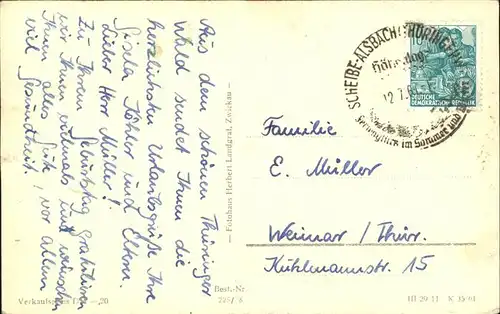 Aus dem schönen Thüringer
Wald sendet Ihnen die
herzlichsten Urlaubsgrüße Ihre
Gisela Köhler und Eltern.
Lieber Herr Müller!
Zu Ihrem Geburtstag gratulieren
wir Ihnen vielmals und wünschen
Ihnen alles Gute, vor allem
viel Gesundheit.
— Fotohaus Herbert Landgraf, Zwickau —
SCHEIBE-ALSBACH (THÜRINGEN)
12.7.
im Sommer und
10
DEUTSCHE
DEMOKRATISCHE REPUBLIK
Familie
E. Müller
Weimar / Thür.
Kuhlmannstr. 15
Verkaufspreis DM —,20
Best.-Nr.
225/6
III/29/11